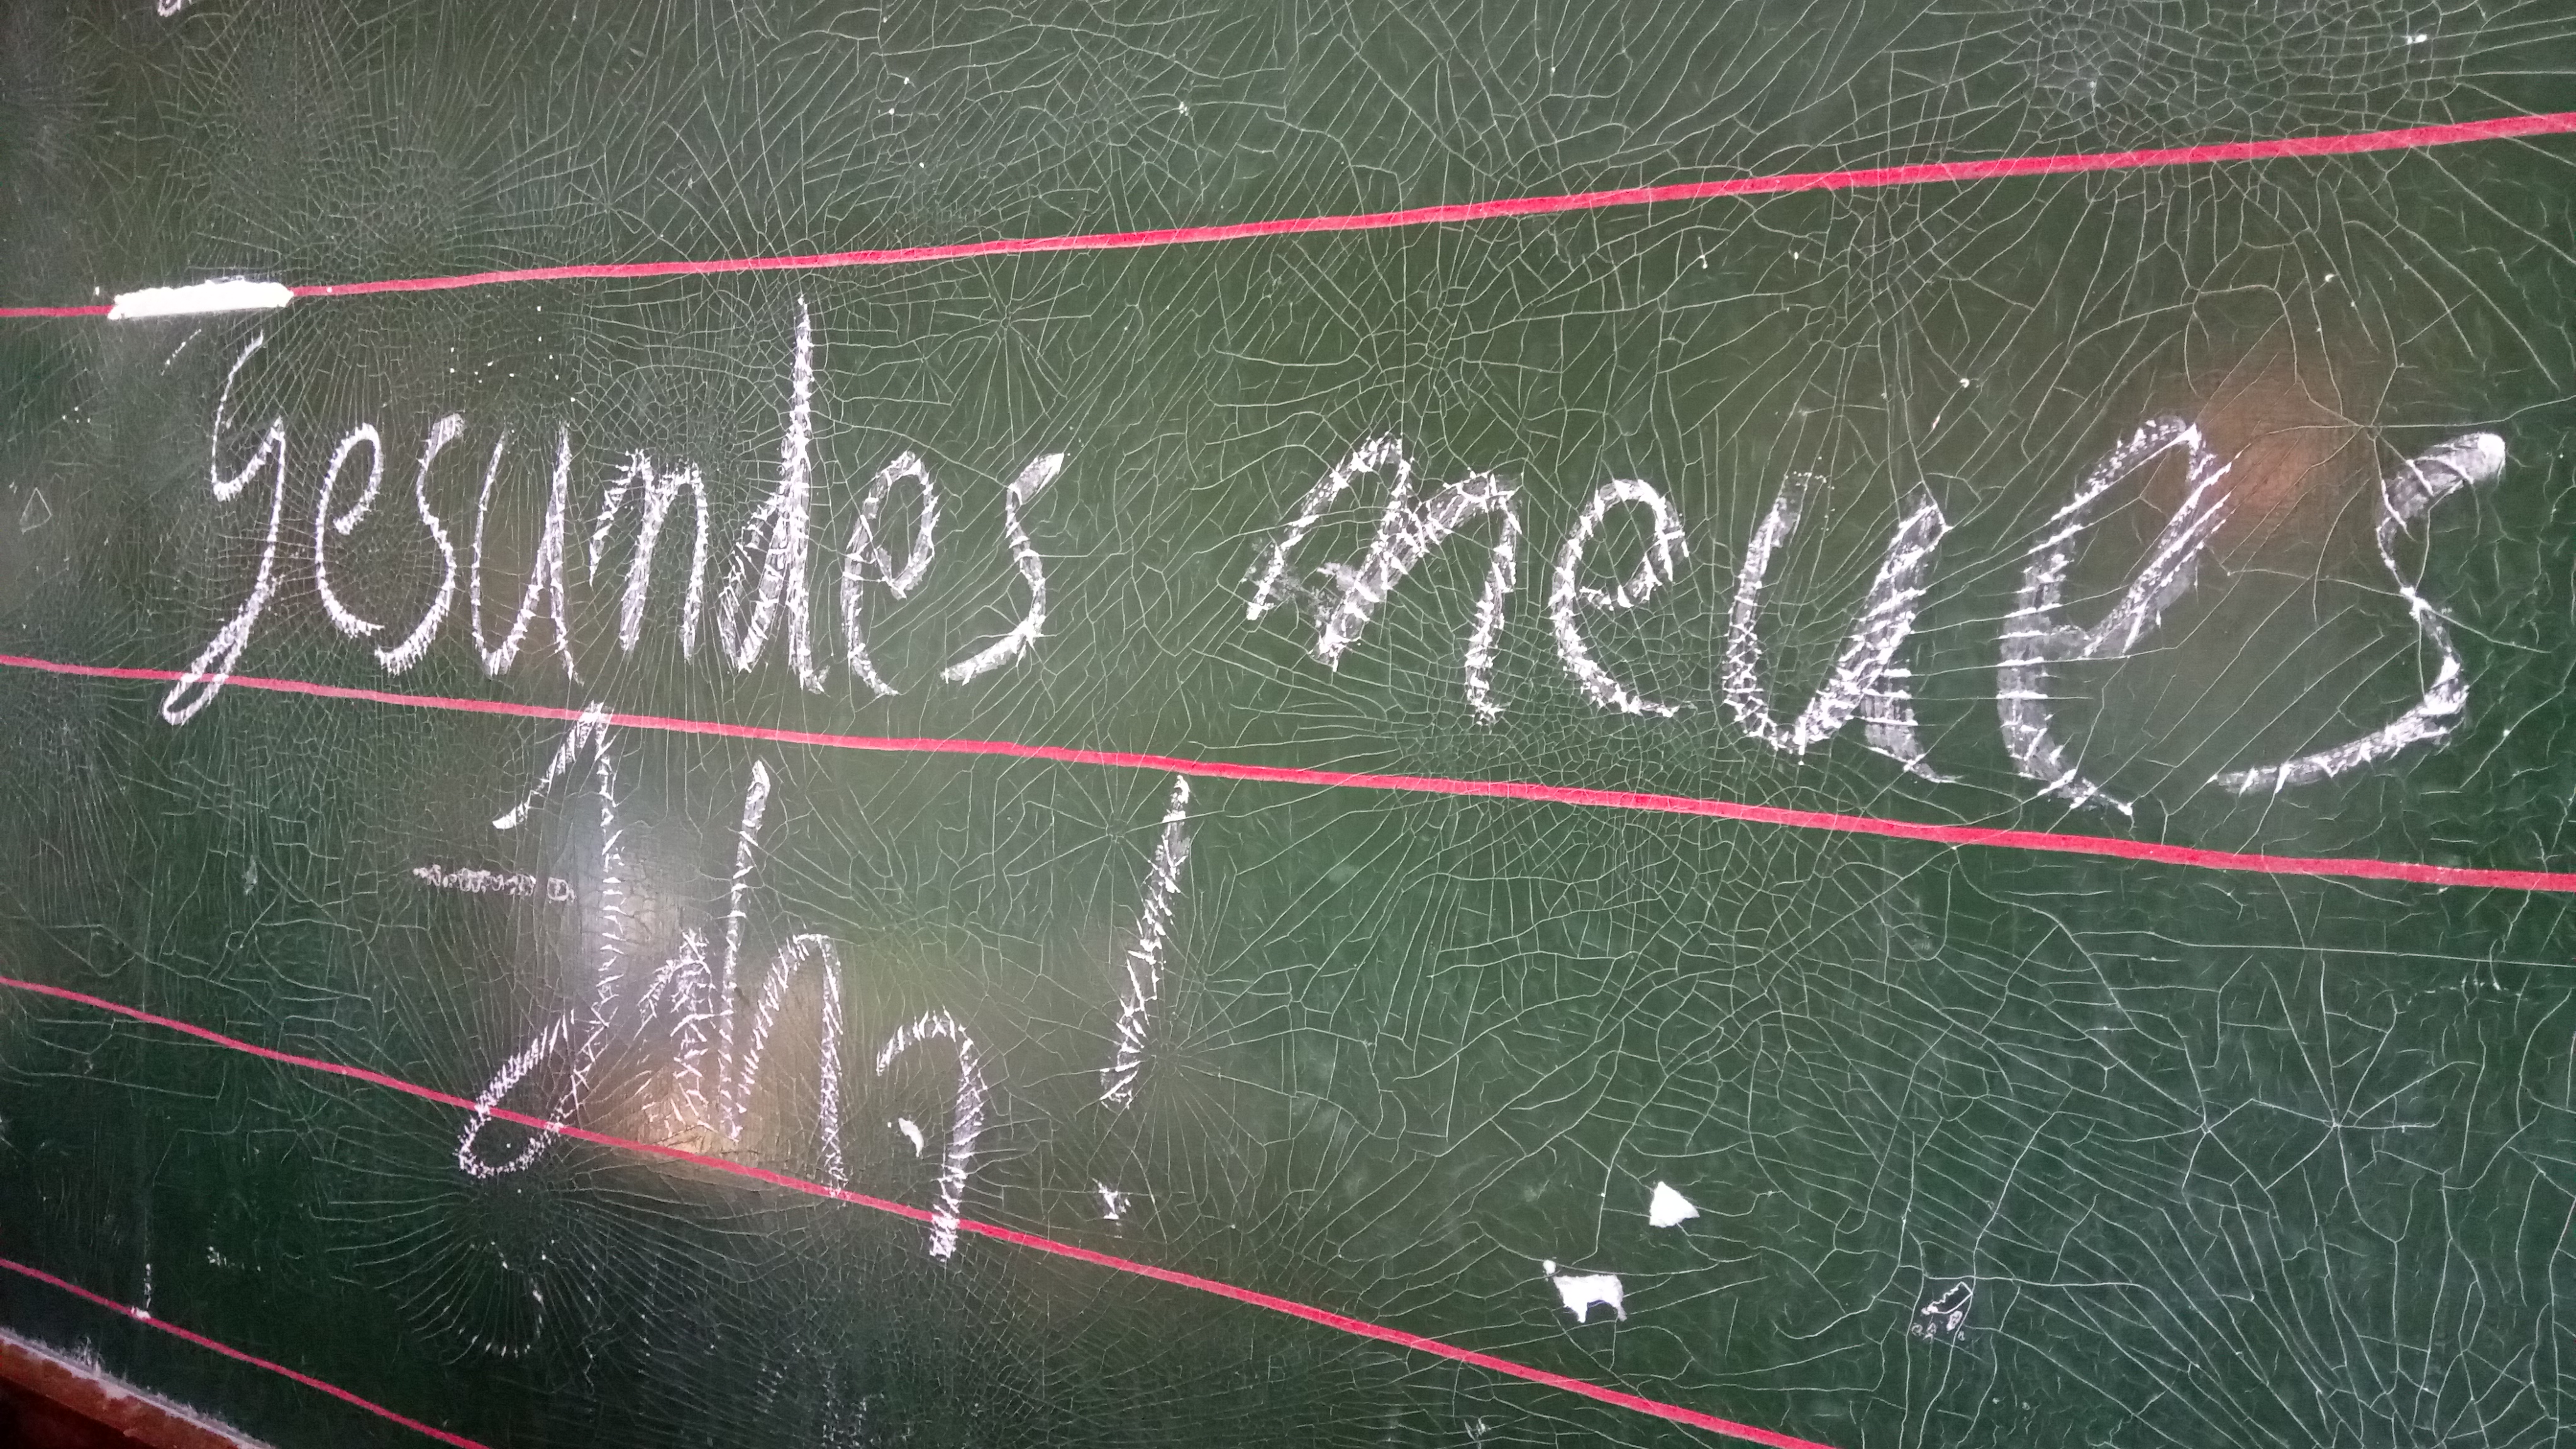 gesundes neues
Jahr!